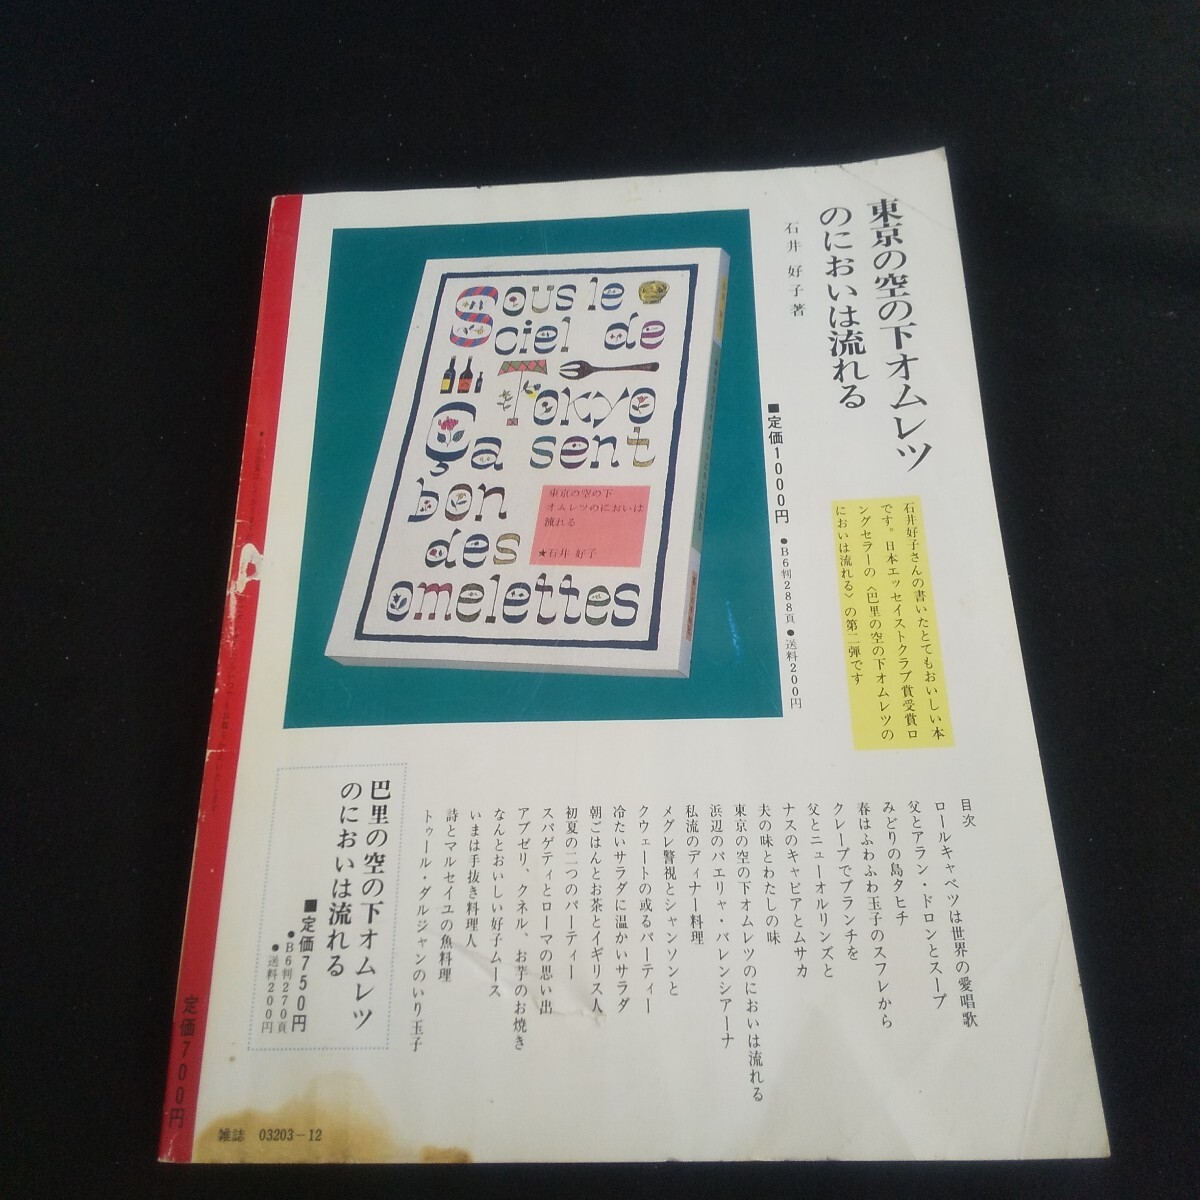 東京の空の下オムレツ
のにおいは流れる
石井好子著
■定価1000円 ●B6判288頁●送料200円
石井好子さんの書いたとてもおいしい本
です。日本エッセイストクラブ賞受賞ロ
ングセラーの〈巴里の空の下オムレツの
においは流れる〉の第二弾です
Sous le
ciel de
Tokyo
Ça sent
bon
des
omelettes
東京の空の下
オムレツのにおいは
流れる
★石井 好子
目次
ロールキャベツは世界の愛唱歌
父とアラン・ドロンとスープ
みどりの島タヒチ
春はふわふわ玉子のスフレから
クレープでブランチを
父とニューオルリンズと
ナスのキャビアとムサカ
夫の味とわたしの味
東京の空の下オムレツのにおいは流れる
浜辺のパエリャ・バレンシアーナ
私流のディナー料理
メグレ警視とシャンソンと
クウェートの或るパーティー
冷たいサラダに温かいサラダ
朝ごはんとお茶とイギリス人
初夏の二つのパーティー
スパゲティとローマの思い出
アブゼリ、クネル、お芋のお焼き
なんとおいしい好子ムース
いまは手抜き料理人
詩とマルセイユの魚料理
トゥール・ダルジャンのいり玉子
巴里の空の下オムレツ
のにおいは流れる
■定価750円
●B6判270頁
●送料200円
定価700円
雑誌 03203-12